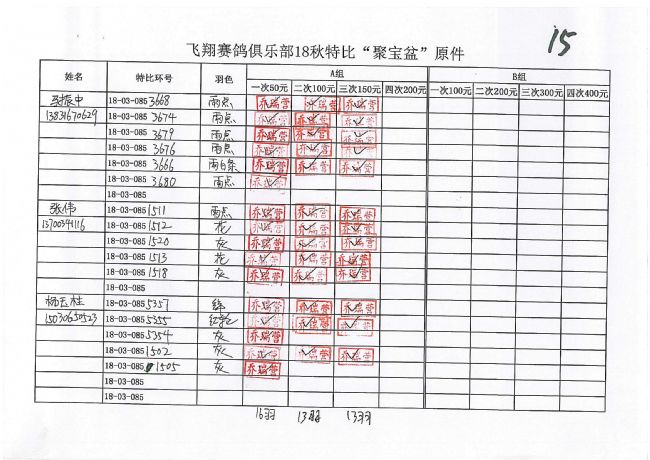 飞翔赛鸽俱乐部18秋特比“聚宝盆”原件
15
姓名 特比环号 羽色 A组 B组
一次50元 二次100元 三次150元 四次200元 一次100元 二次200元 三次300元 四次400元
张振中 18-03-085 3668 雨点 乔瑞营 乔瑞营 乔瑞营
13831670629 18-03-085 3674 雨点 乔瑞营 乔瑞营 乔瑞营
18-03-085 3679 雨点 乔瑞营 乔瑞营 乔瑞营
18-03-085 3676 雨点 乔瑞营 乔瑞营 乔瑞营
18-03-085 3666 雨白条 乔瑞营 乔瑞营 乔瑞营
18-03-085 3680 雨点 乔瑞营
18-03-085
张伟 18-03-085 1511 雨点 乔瑞营 乔瑞营 乔瑞营
13700341116 18-03-085 1512 花 乔瑞营 乔瑞营 乔瑞营
18-03-085 1520 灰 乔瑞营 乔瑞营 乔瑞营
18-03-085 1513 花 乔瑞营 乔瑞营 乔瑞营
18-03-085 1518 灰 乔瑞营 乔瑞营 乔瑞营
18-03-085
杨玉柱 18-03-085 5357 绛 乔瑞营 乔瑞营 乔瑞营
15030650523 18-03-085 5355 乔瑞营 乔瑞营 乔瑞营
18-03-085 5354 灰 乔瑞营
18-03-085 1502 灰 乔瑞营 乔瑞营 乔瑞营
18-03-085 1505 灰 乔瑞营
18-03-085
18-03-085
16羽 13羽 13羽